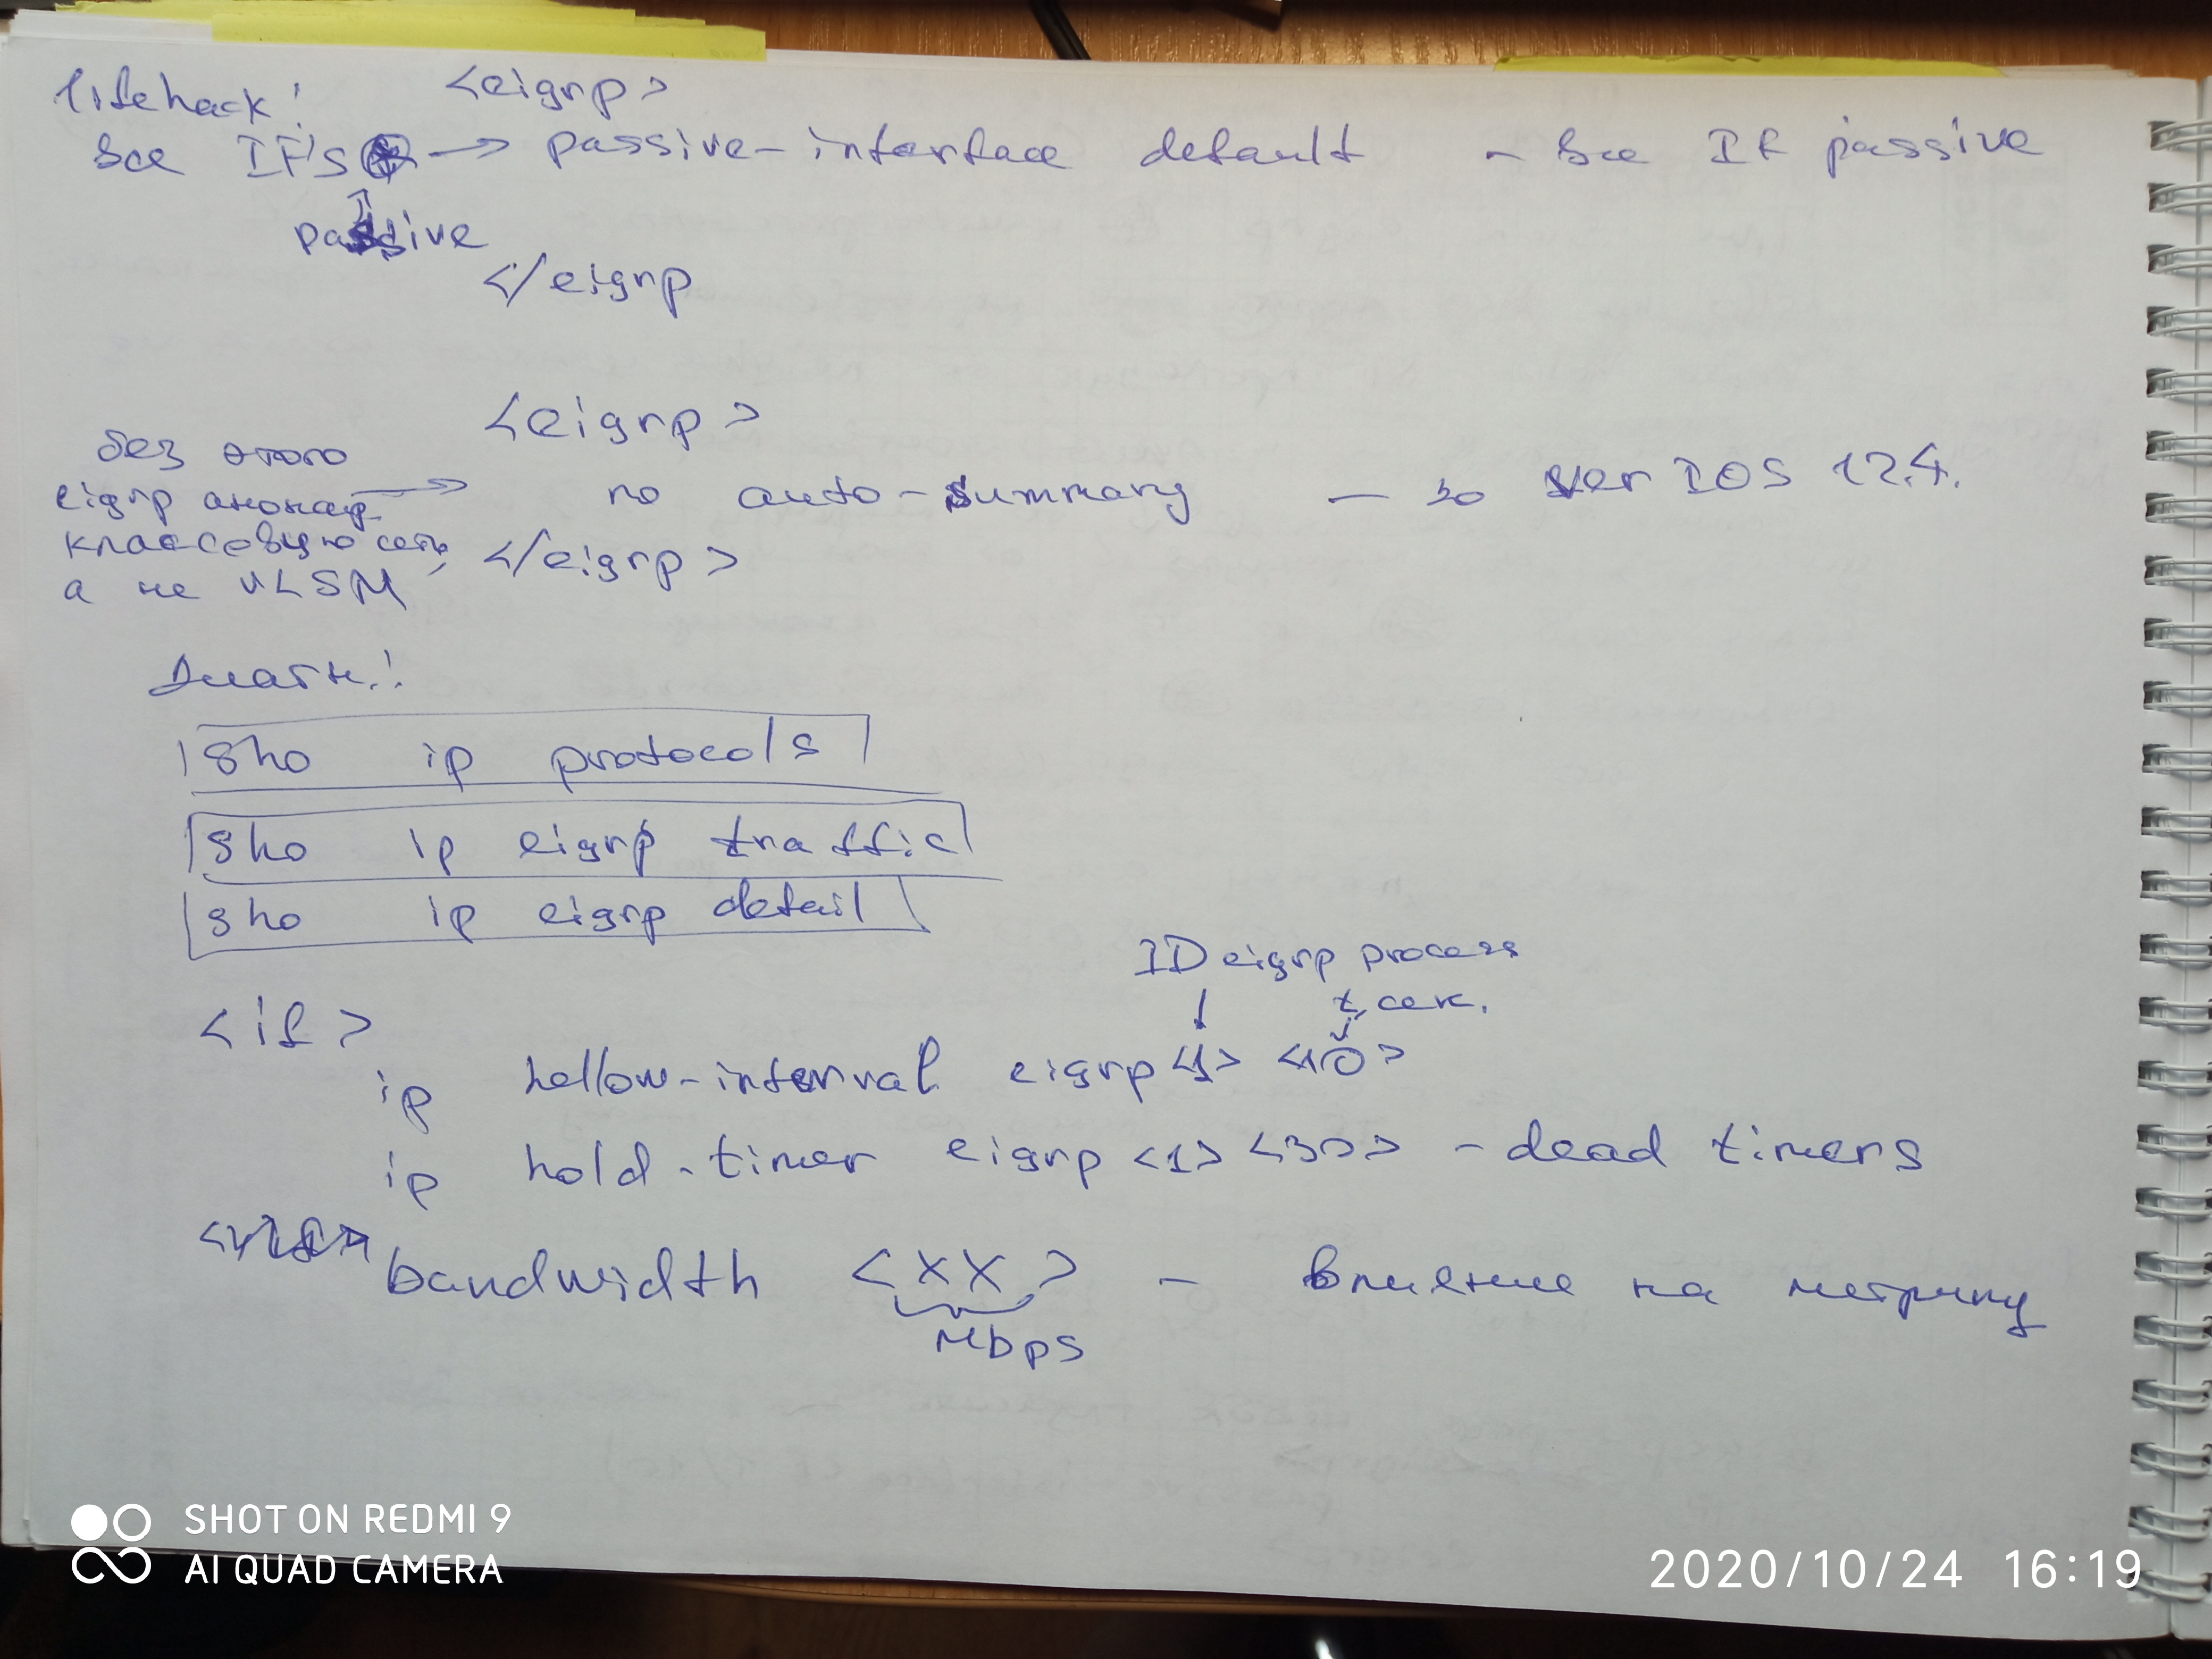 lifehack! <eigrp>
все IF'S → passive-interface default - все IF passive
passive
</eigrp
<eigrp>
без этого
eigrp анонсир. → no auto-summary - до ver IOS 12.4.
классовую сеть,
а не VLSM
</eigrp>
Диагн.!
sho ip protocols
sho ip eigrp traffic
sho ip eigrp detail
ID eigrp process
t, сек.
<if>
ip hellow-interval eigrp <1> <10>
ip hold-timer eigrp <1> <30> - dead timers
bandwidth <xx> - влияние на метрику
Mbps
SHOT ON REDMI 9
AI QUAD CAMERA
2020/10/24 16:19